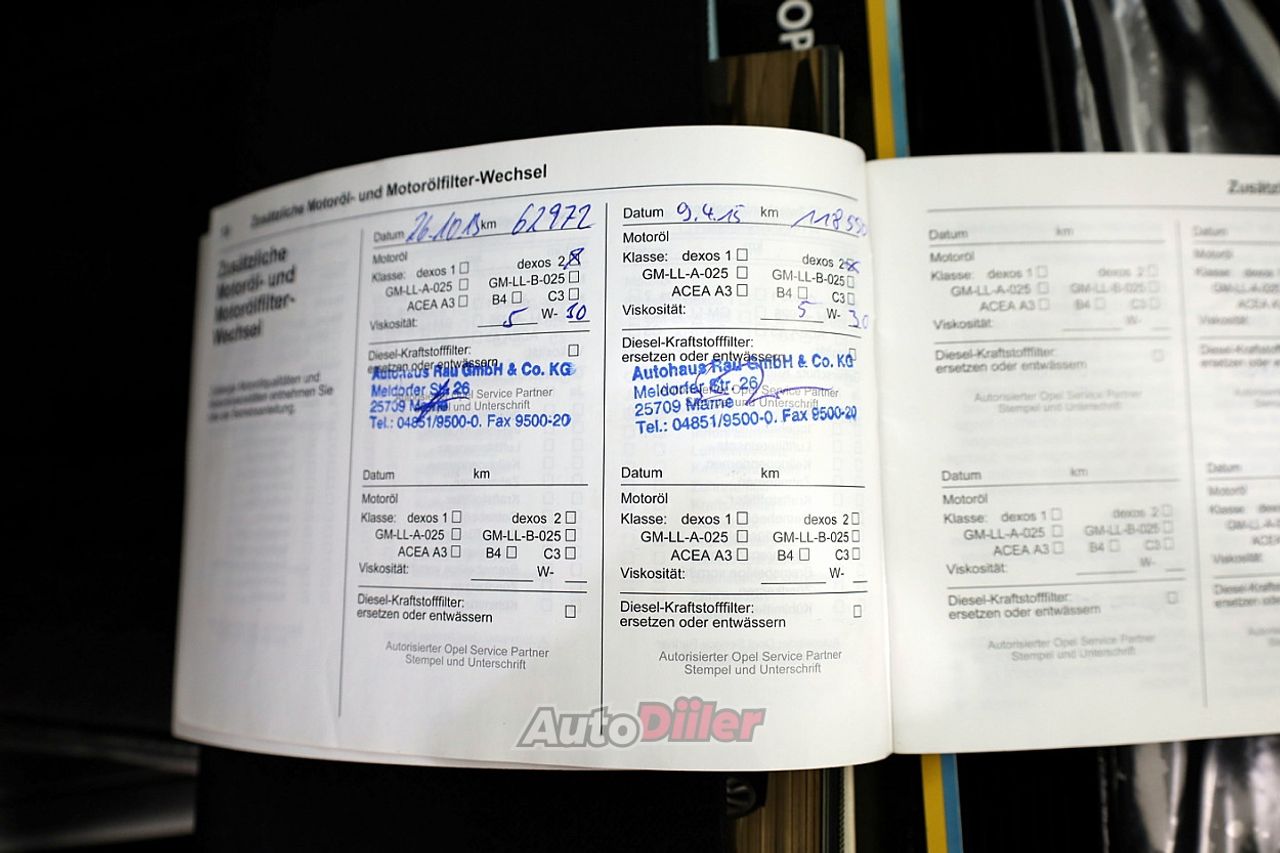 OP
Zusätzliche Motoröl- und Motorölfilter-Wechsel
Zusätzliche
Motoröl- und
Motorölfilter-
Wechsel
Datum 26.10.13 km 62972
Motoröl
Klasse: dexos 1 dexos 2
GM-LL-A-025 GM-LL-B-025
ACEA A3 B4 C3
Viskosität: 5 W- 30
Diesel-Kraftstofffilter:
ersetzen oder entwässern
Autohaus Rau GmbH & Co. KG
Meldorfer Str. 26
Autorisierter Opel Service Partner
25709 Marne
Stempel und Unterschrift
Tel.: 04851/9500-0. Fax 9500-20
Datum km
Motoröl
Klasse: dexos 1 dexos 2
GM-LL-A-025 GM-LL-B-025
ACEA A3 B4 C3
Viskosität: W-
Diesel-Kraftstofffilter:
ersetzen oder entwässern
Autorisierter Opel Service Partner
Stempel und Unterschrift
Datum 9.4.15 km
Motoröl
Klasse: dexos 1 dexos 2
GM-LL-A-025 GM-LL-B-025
ACEA A3 B4 C3
Viskosität: 5 W- 30
Diesel-Kraftstofffilter:
ersetzen oder entwässern
Autohaus Rau GmbH & Co. KG
Meldorfer Str. 26
Autorisierter Opel Service Partner
25709 Marne
Stempel und Unterschrift
Tel.: 04851/9500-0. Fax 9500-20
Datum km
Motoröl
Klasse: dexos 1 dexos 2
GM-LL-A-025 GM-LL-B-025
ACEA A3 B4 C3
Viskosität: W-
Diesel-Kraftstofffilter:
ersetzen oder entwässern
Autorisierter Opel Service Partner
Stempel und Unterschrift
Datum km
Motoröl
Klasse: dexos 1 dexos 2
GM-LL-A-025 GM-LL-B-025
ACEA A3 B4 C3
Viskosität: W-
Diesel-Kraftstofffilter:
ersetzen oder entwässern
Autorisierter Opel Service Partner
Stempel und Unterschrift
Datum km
Motoröl
Klasse: dexos 1 dexos 2
GM-LL-A-025 GM-LL-B-025
ACEA A3 B4 C3
Viskosität: W-
Diesel-Kraftstofffilter:
ersetzen oder entwässern
Autorisierter Opel Service Partner
Stempel und Unterschrift
AutoDiiler